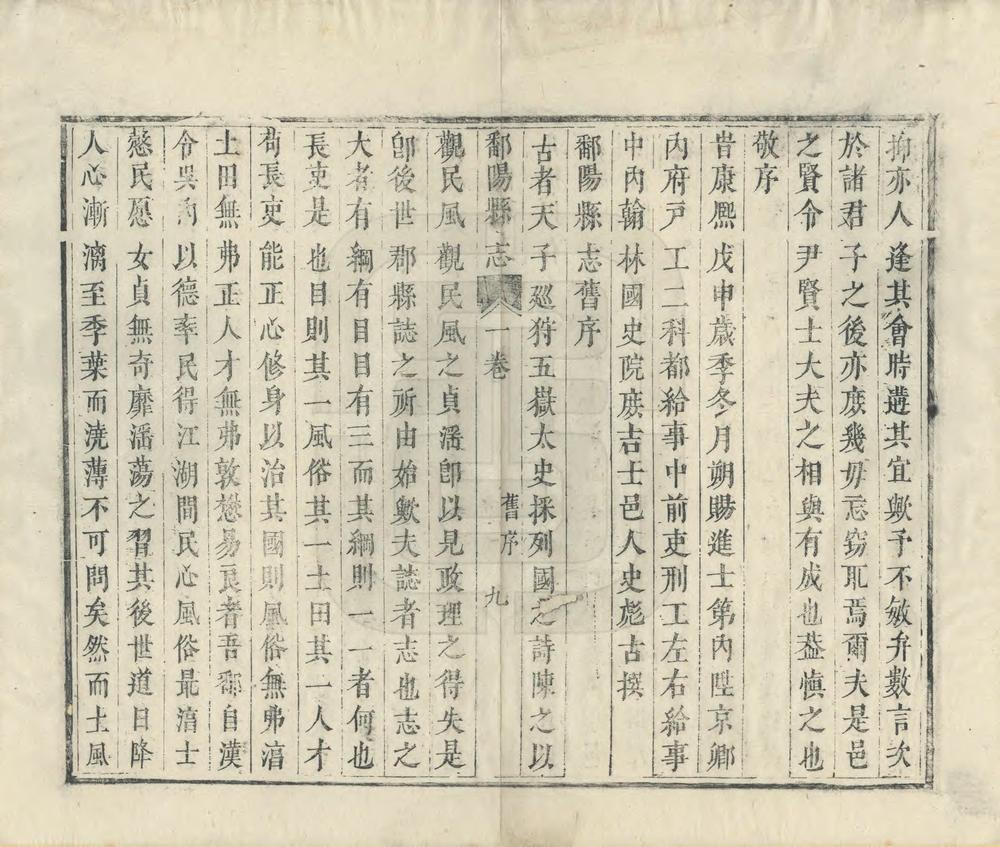 抑亦人逢其會時遘其宜歟予不敏弁數言次
於諸君子之後亦庶幾毋忘窃耻焉爾夫是邑
之賢令尹賢士大夫之相與有成也葢愼之也
敬序
昔康熙戊申歲季冬月朔賜進士第內陞京卿
內府戶工二科都給事中前吏刑工左右給事
中內翰林國史院庶吉士邑人史彪古撰
鄱陽縣志舊序
古者天子廵狩五嶽太史採列國之詩陳之以
鄱陽縣志 一卷 舊序 九
觀民風觀民風之貞滛卽以見政理之得失是
卽後世郡縣誌之所由始歟夫誌者志也志之
大者有綱有目目有三而其綱則一一者何也
長吏是也目則其一風俗其一土田其一人才
茍長吏能正心修身以治其國則風俗無弗淳
土田無弗正人才無弗敦懋易良者吾鄱自漢
令吳芮以德率民得江湖間民心風俗最淳士
慤民愿女貞無奇靡滛蕩之習其後世道日降
人心漸漓至季葉而澆薄不可問矣然而土風